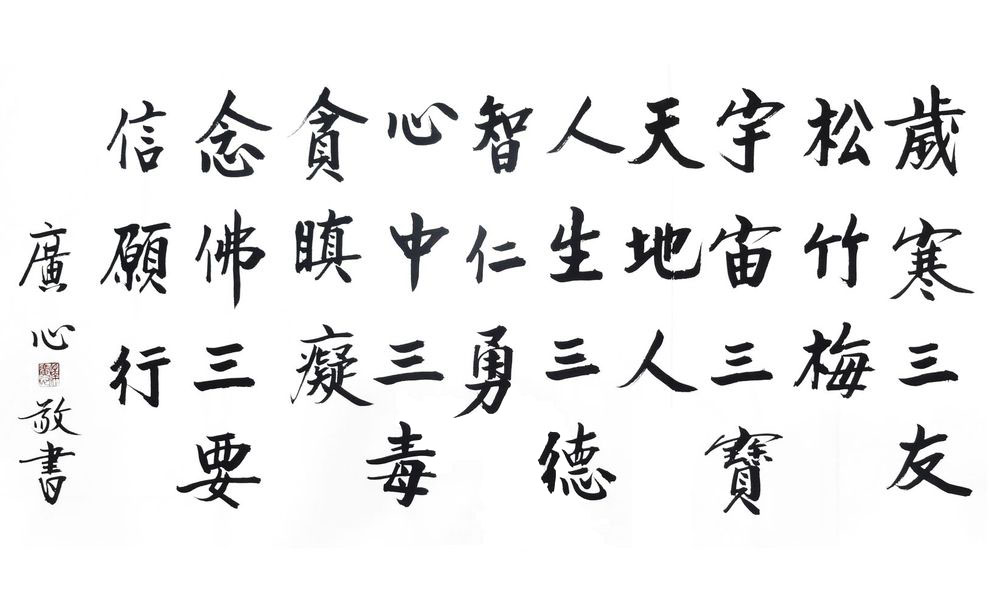 歲寒三友
松竹梅
宇宙三寶
天地人
人生三德
智仁勇
心中三毒
貪瞋癡
念佛三要
信願行
廣心敬書